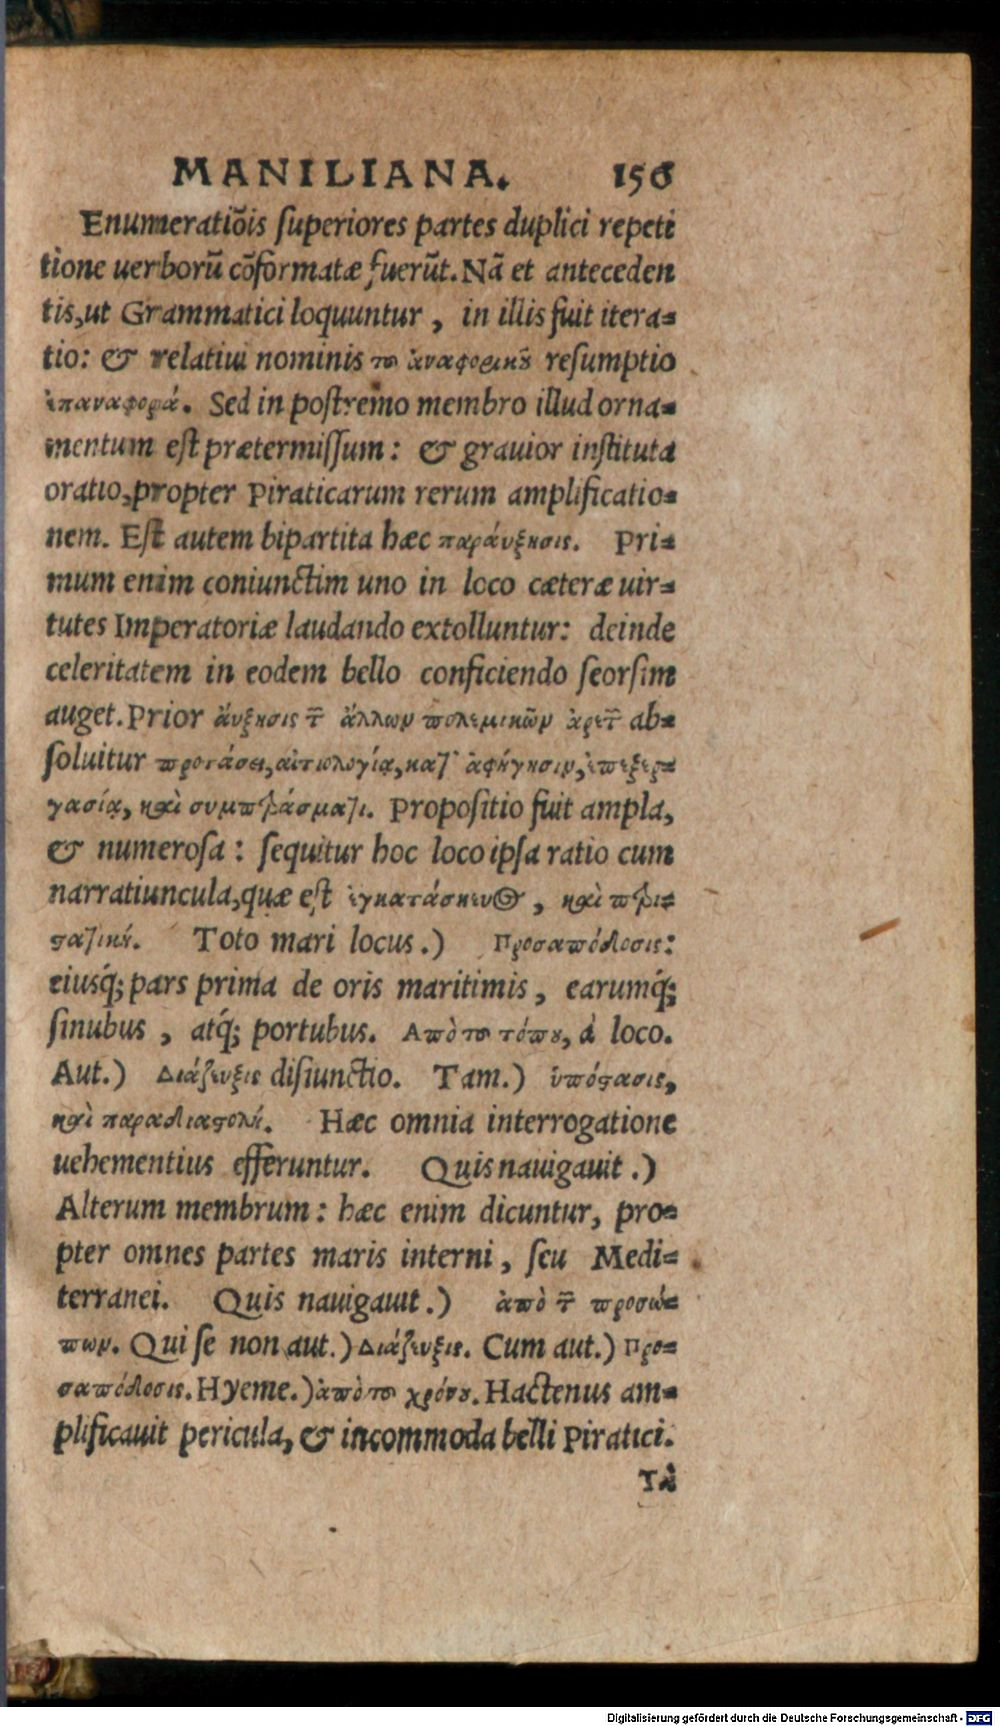 MANILIANA. 156
Enumeratiõis superiores partes duplici repeti
tione uerborũ cõformatæ fuerũt. Nã et anteceden
tis, ut Grammatici loquuntur, in illis fuit itera=
tio: & relatiui nominis τοῦ ἀναφορικοῦ resumptio
ἐπαναφορά. Sed in postremo membro illud orna=
mentum est prætermissum: & grauior instituta
oratio, propter Piraticarum rerum amplificatio=
nem. Est autem bipartita hæc παράυξησις. Pri=
mum enim coniunctim uno in loco cæteræ uir=
tutes Imperatoriæ laudando extolluntur: deinde
celeritatem in eodem bello conficiendo seorsim
auget. Prior ἄυξησις τῶν ἄλλων πολεμικῶν ἀρετῶν ab=
soluitur προτάσει, αἰτιολογίᾳ, κατ᾽ ἀφήγησιν, ἐπεξερ=
γασίᾳ, καὶ συμπεράσματι. Propositio fuit ampla,
& numerosa: sequitur hoc loco ipsa ratio cum
narratiuncula, quæ est ἐγκατάσκευος, καὶ περι=
στατική. Toto mari locus.) Προσαπόδοσις:
eiusq́; pars prima de oris maritimis, earumq́;
sinubus, atq́; portubus. Απὸ τοῦ τόπου, à loco.
Aut.) Διάζευξις disiunctio. Tam.) ὑπόστασις,
καὶ παραδιαστολή. Hæc omnia interrogatione
uehementius efferuntur. Quis nauigauit.)
Alterum membrum: hæc enim dicuntur, pro=
pter omnes partes maris interni, seu Medi=
terranei. Quis nauigauit.) ἀπὸ τῶν προσώ=
πων. Qui se non aut.) Διάζευξις. Cum aut.) Προ=
σαπόδοσις. Hyeme.) ἀπὸ τοῦ χρόνου. Hactenus am=
plificauit pericula, & incommoda belli Piratici.
Tā
Digitalisierung gefördert durch die Deutsche Forschungsgemeinschaft - DFG